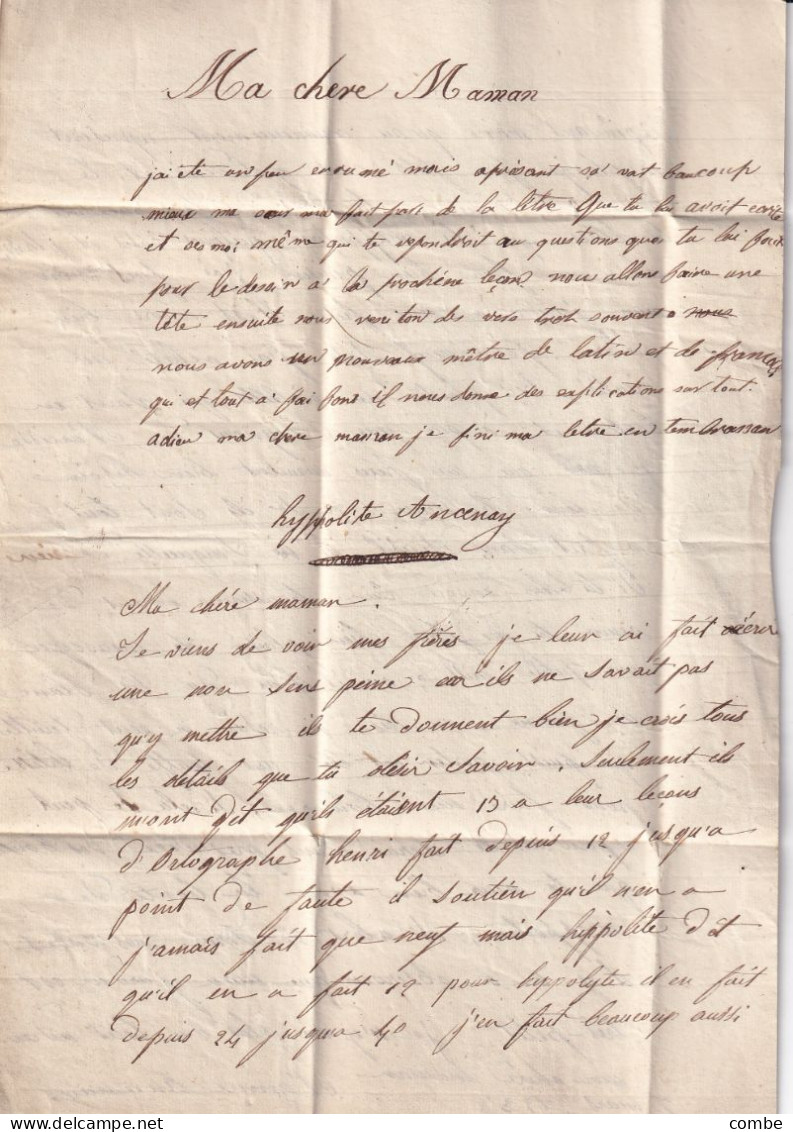 Ma chere Maman
jai ete un peu enrumé mais apresant sa vat baucoup
mieux ma seur ma fait part de la letre Que tu lui avoit ecrite
et ces moi même qui te repondroit au questions que tu lui fait
pour le desein a la prochéne leçon nous allons faire une
tête ensuite nous reciton des vers troh souvant nous
nous avons un nouveaux mêtre de latin et de francas
qui et tout a fai bon il nous done des explications sur tout.
adieu ma chere maman je fini ma letre en tembrassan
hyppolite Ancenay
Ma chére maman.
Je viens de voir mes frères je leur ai fait écrir
une non sens peine car ils ne savait pas
qu'y mettre ils te donnent bien je crois tous
les détails que tu désir savoir. Seulement ils
m'ont dit qu'ils étaient 13 a leur leçons
d'Ortographe henri fait depuis 12 jusqu'a
point de faute il soutien qu'il n'en a
j'amais fait que neuf mais hippolite dit
qu'il en a fait 12 pour hyppolyte il en fait
depuis 24 jusqua 40 j'en fait beaucoup aussi
combe
delcampe.net